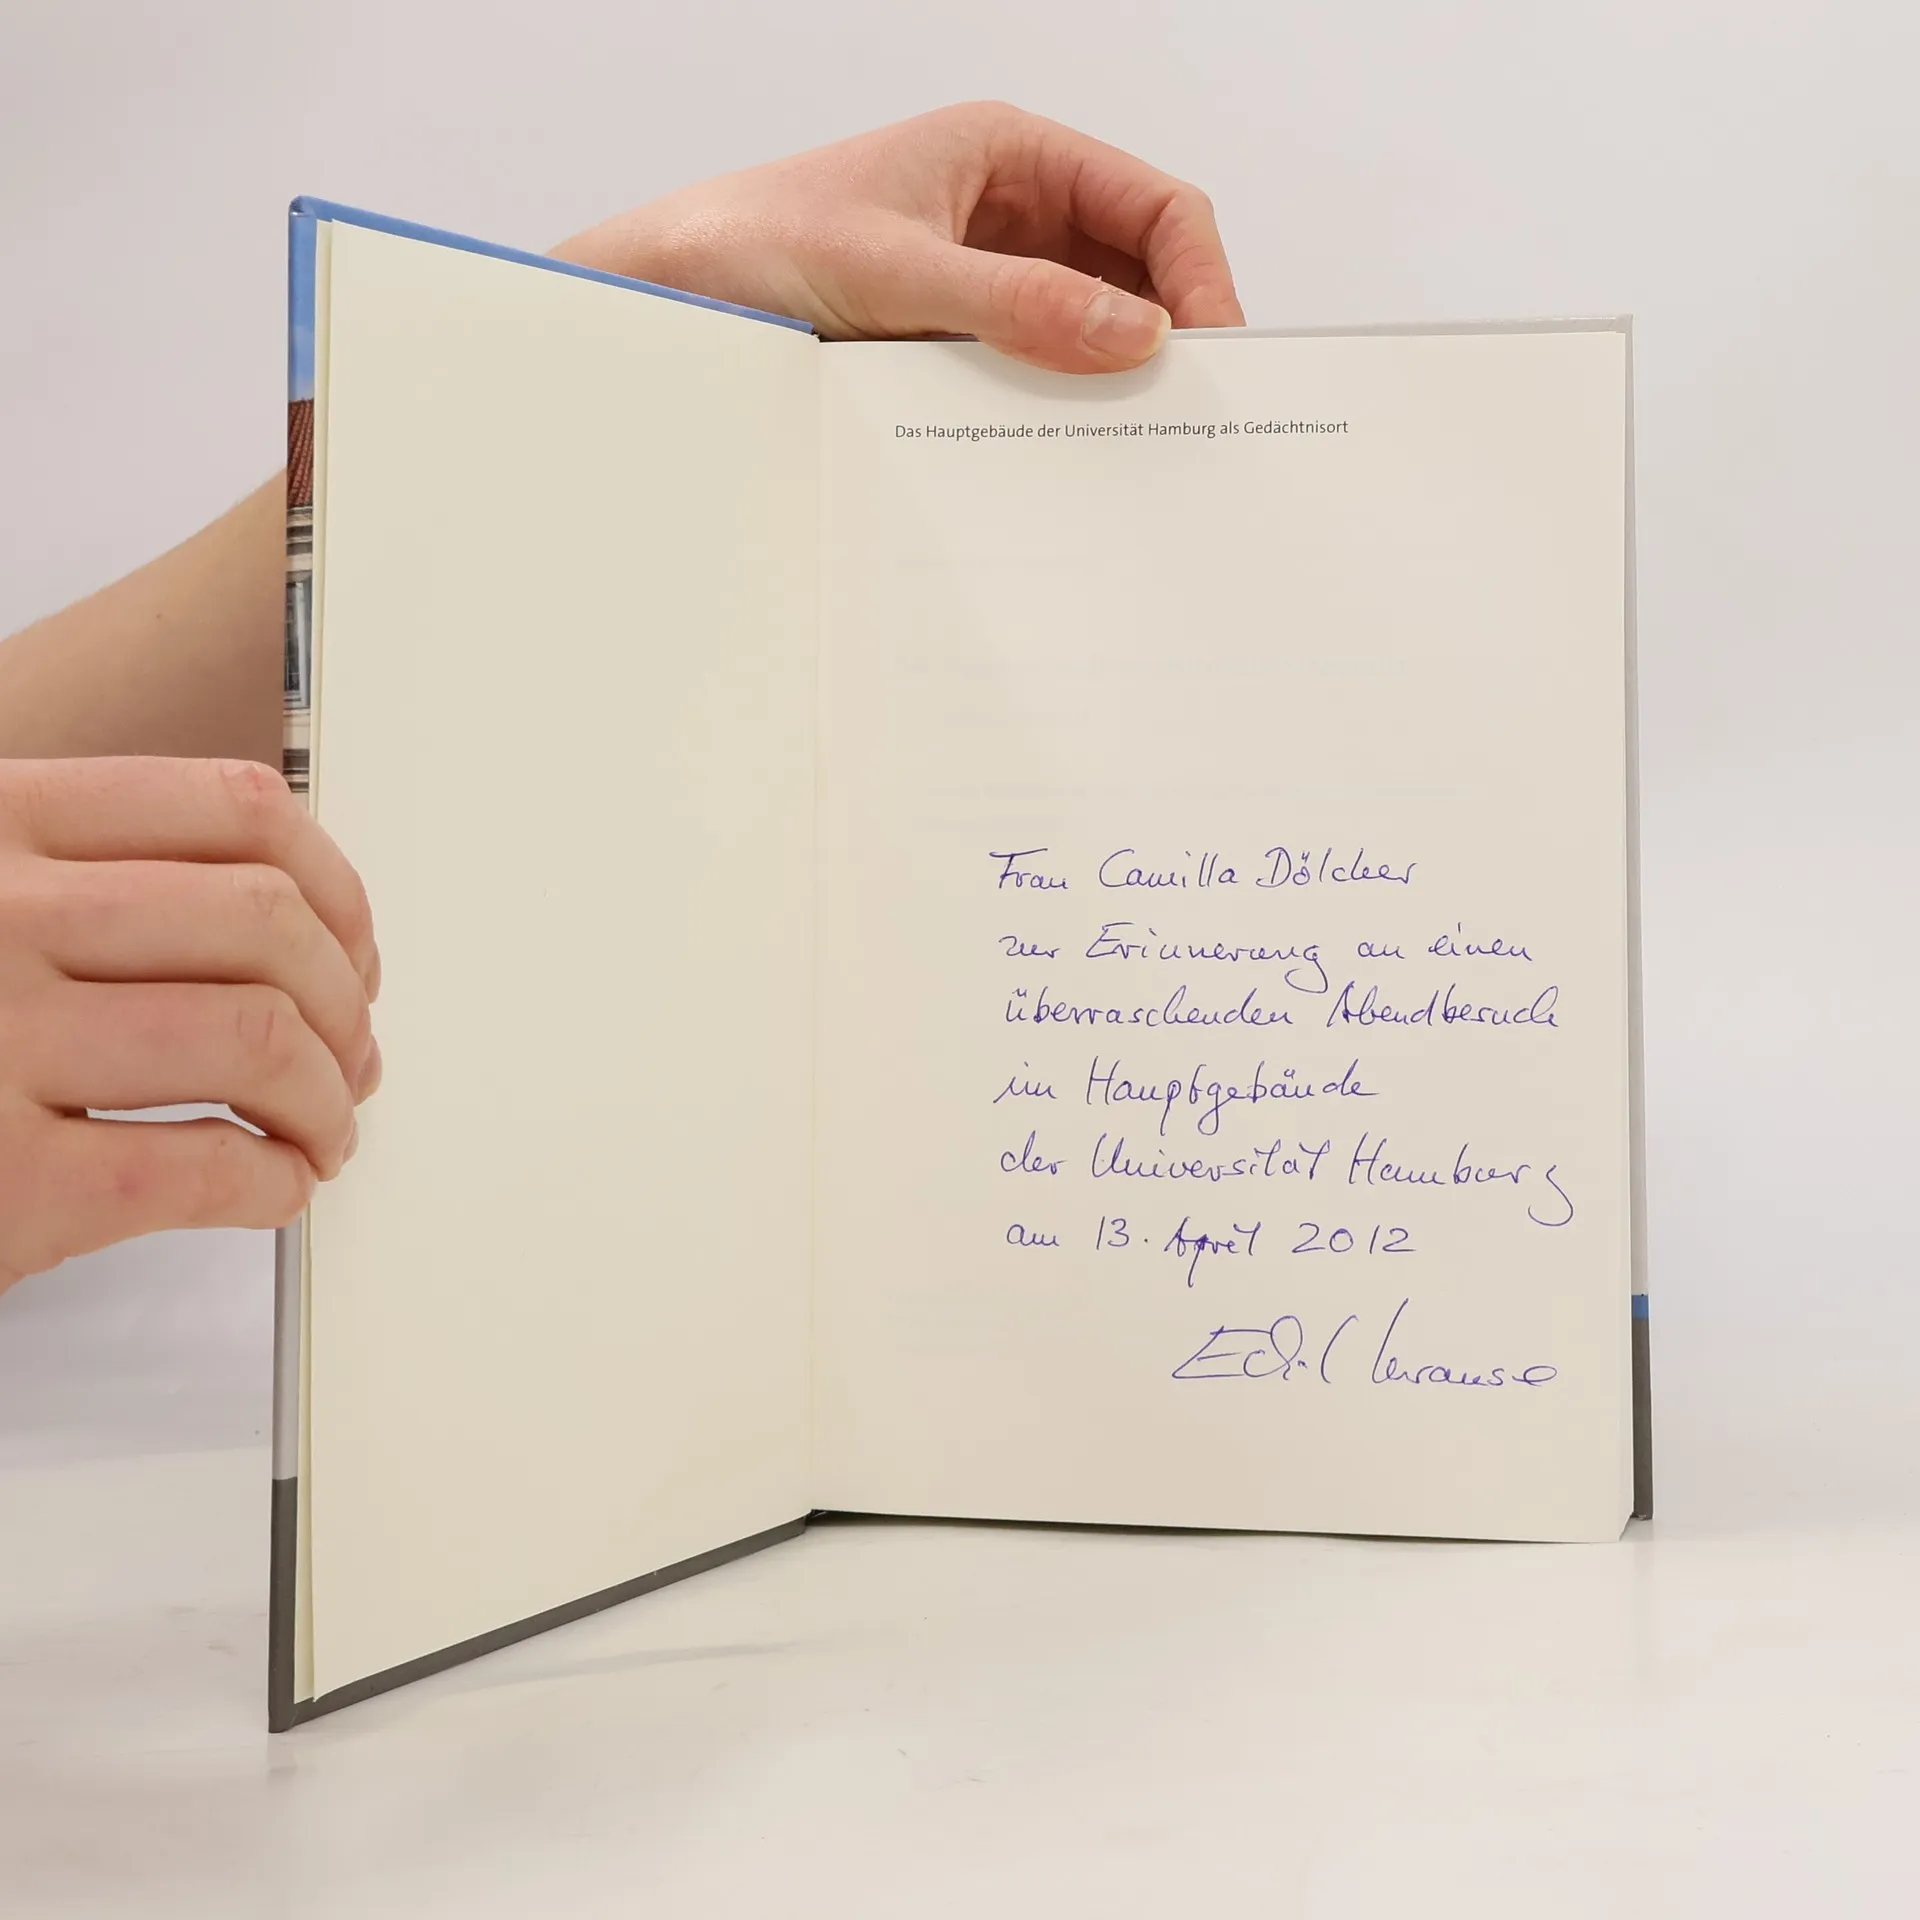 Das Hauptgebäude der Universität Hamburg als Gedächtnisort
Frau Camilla Dölcher
zur Erinnerung an einen
überraschenden Abendbesuch
im Hauptgebäude
der Universität Hamburg
am 13. April 2012
Krause